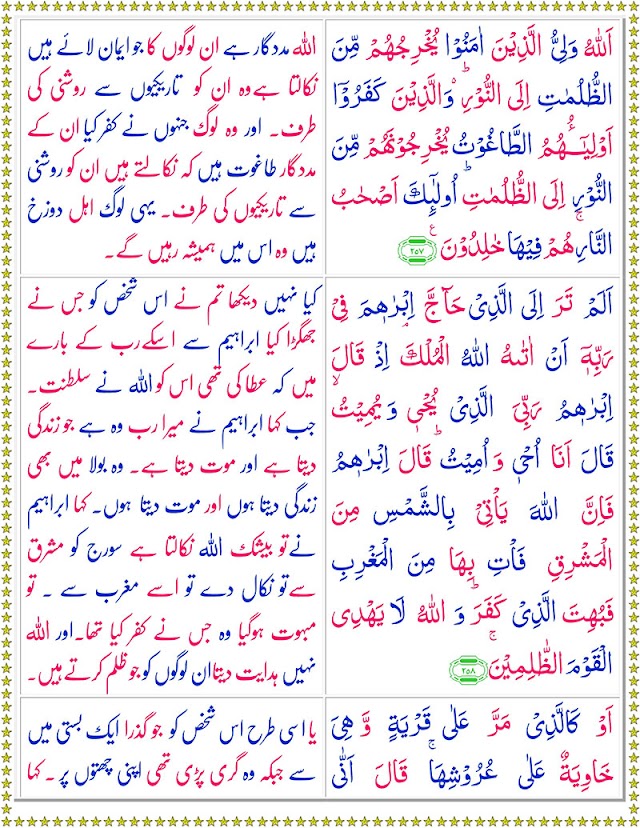 اَللّٰهُ وَلِیُّ الَّذِیْنَ اٰمَنُوْا یُخْرِجُهُمْ مِّنَ
الظُّلُمٰتِ اِلَی النُّوْرِ۬ؕ وَالَّذِیْنَ كَفَرُوْۤا
اَوْلِیٰٓـُٔهُمُ الطَّاغُوْتُ یُخْرِجُوْنَهُمْ مِّنَ
النُّوْرِ اِلَی الظُّلُمٰتِؕ اُولٰٓئِكَ اَصْحٰبُ
النَّارِۚ هُمْ فِیْهَا خٰلِدُوْنَ۠ ﴿۲۵۷﴾
اللہ مددگار ہے ان لوگوں کا جو ایمان لائے ہیں
نکالتا ہے وہ ان کو تاریکیوں سے روشنی کی
طرف۔ اور وہ لوگ جنہوں نے کفر کیا ان کے
مددگار طاغوت ہیں کہ نکالتے ہیں ان کو روشنی
سے تاریکیوں کی طرف۔ یہی لوگ اہل دوزخ
ہیں وہ اس میں ہمیشہ رہیں گے۔
اَلَمْ تَرَ اِلَی الَّذِیْ حَآجَّ اِبْرٰهٖمَ فِیْ
رَبِّهٖۤ اَنْ اٰتٰىهُ اللّٰهُ الْمُلْكَۘ اِذْ قَالَ
اِبْرٰهٖمُ رَبِّیَ الَّذِیْ یُحْیٖ وَ یُمِیْتُۙ
قَالَ اَنَا اُحْیٖ وَ اُمِیْتُؕ قَالَ اِبْرٰهٖمُ
فَاِنَّ اللّٰهَ یَاْتِیْ بِالشَّمْسِ مِنَ
الْمَشْرِقِ فَاْتِ بِهَا مِنَ الْمَغْرِبِ
فَبُهِتَ الَّذِیْ كَفَرَؕ وَ اللّٰهُ لَا یَهْدِی
الْقَوْمَ الظّٰلِمِیْنَۚ ﴿۲۵۸﴾
کیا نہیں دیکھا تم نے اس شخص کو جس نے
جھگڑا کیا ابراہیم سے اسکے رب کے بارے
میں کہ عطا کی تھی اس کو اللہ نے سلطنت۔
جب کہا ابراہیم نے میرا رب وہ ہے جو زندگی
دیتا ہے اور موت دیتا ہے۔ وہ بولا میں بھی
زندگی دیتا ہوں اور موت دیتا ہوں۔ کہا ابراہیم
نے تو بیشک اللہ نکالتا ہے سورج کو مشرق
سے تو نکال دے تو اسے مغرب سے ۔ تو
مبہوت ہوگیا وہ جس نے کفر کیا تھا۔ اور اللہ
نہیں ہدایت دیتا ان لوگوں کو جو ظلم کرتے ہیں۔
اَوْ كَالَّذِیْ مَرَّ عَلٰی قَرْیَةٍ وَّ هِیَ
خَاوِیَةٌ عَلٰی عُرُوْشِهَاۚ قَالَ اَنّٰی
یا اسی طرح اس شخص کو جو گذرا ایک بستی میں
سے جبکہ وہ گری پڑی تھی اپنی چھتوں پر ۔ کہا